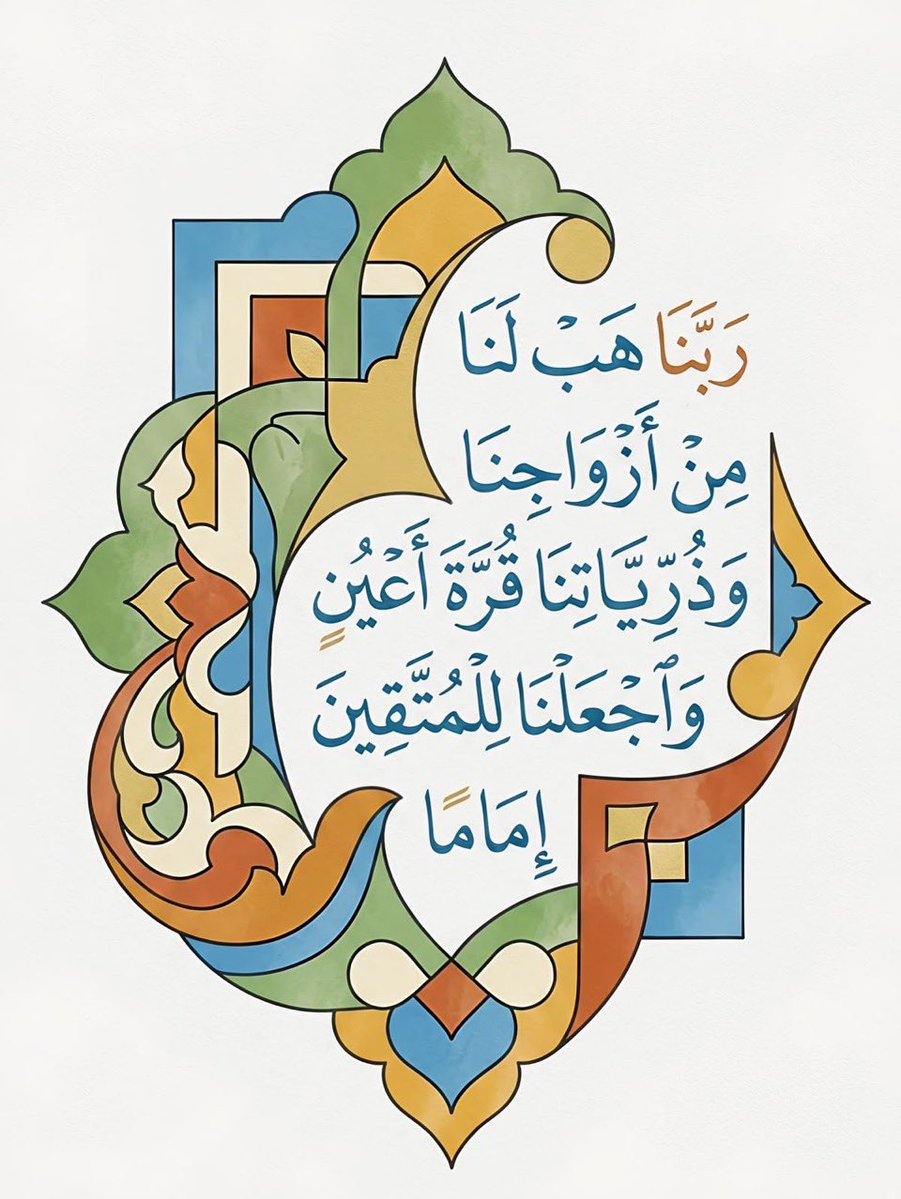 رَبَّنَا هَبْ لَنَا
مِنْ أَزْوَاجِنَا
وَذُرِّيَّاتِنَا قُرَّةَ أَعْيُنٍ
وَٱجْعَلْنَا لِلْمُتَّقِينَ
إِمَامًا